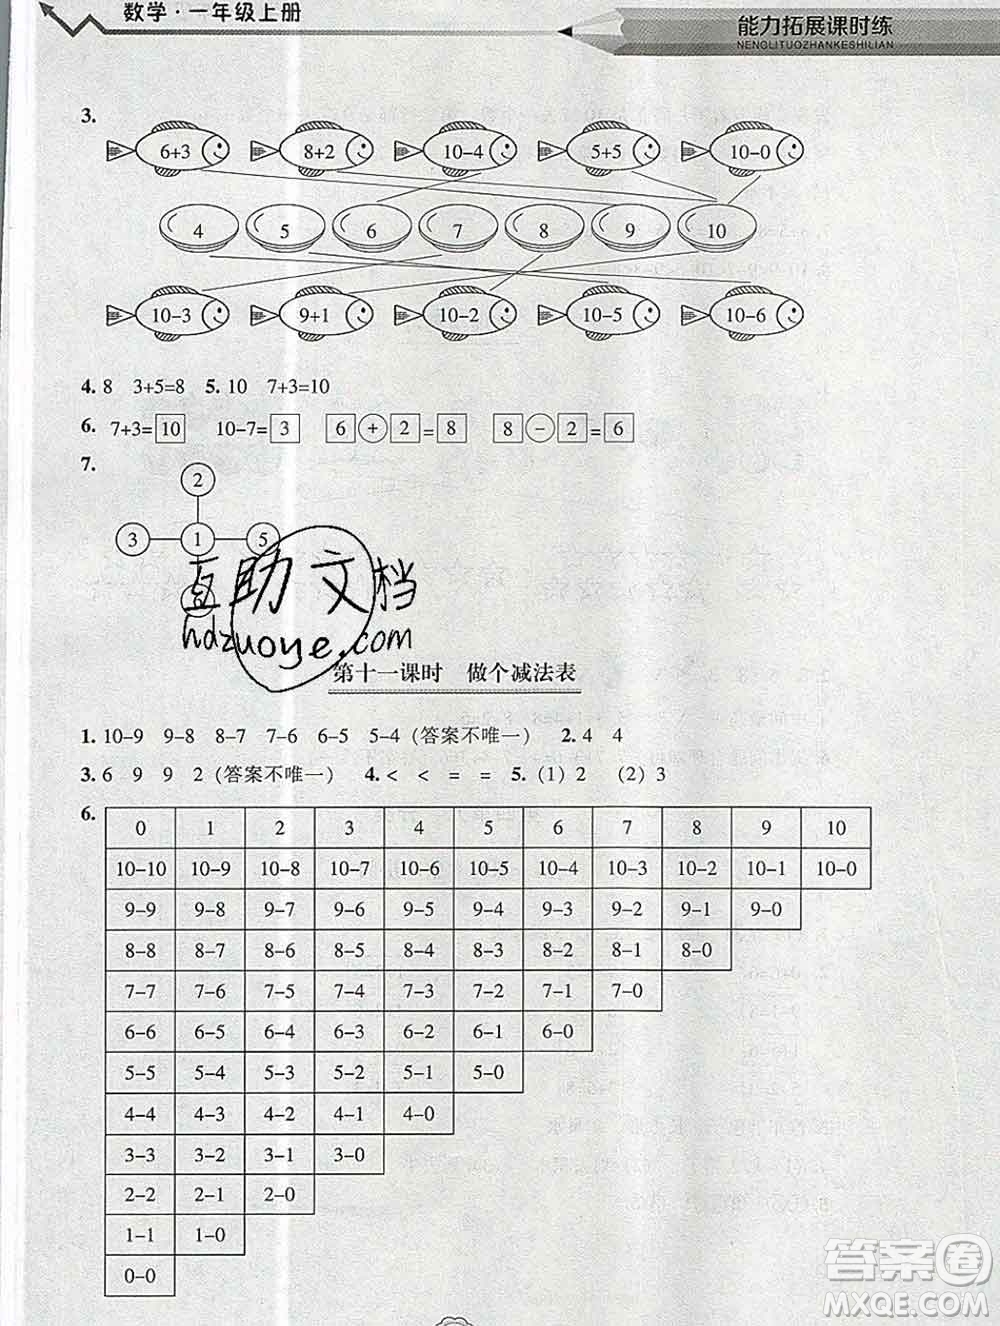 数学·一年级上册
能力拓展课时练
NENGLITUOZHANKESHILIAN
3.
6+3 8+2 10-4 5+5 10-0
4 5 6 7 8 9 10
10-3 9+1 10-2 10-5 10-6
4. 8 3+5=8 5. 10 7+3=10
6. 7+3=10 10-7=3 6+2=8 8-2=6
7.
2
3 1 5
互助文档
hdzuoye.com
第十一课时 做个减法表
1. 10-9 9-8 8-7 7-6 6-5 5-4(答案不唯一) 2. 4 4
3. 6 9 9 2(答案不唯一) 4. < < = = 5. (1) 2 (2) 3
6.
0 1 2 3 4 5 6 7 8 9 10
10-10 10-9 10-8 10-7 10-6 10-5 10-4 10-3 10-2 10-1 10-0
9-9 9-8 9-7 9-6 9-5 9-4 9-3 9-2 9-1 9-0
8-8 8-7 8-6 8-5 8-4 8-3 8-2 8-1 8-0
7-7 7-6 7-5 7-4 7-3 7-2 7-1 7-0
6-6 6-5 6-4 6-3 6-2 6-1 6-0
5-5 5-4 5-3 5-2 5-1 5-0
4-4 4-3 4-2 4-1 4-0
3-3 3-2 3-1 3-0
2-2 2-1 2-0
1-1 1-0
0-0
答案圈
MXQE.COM